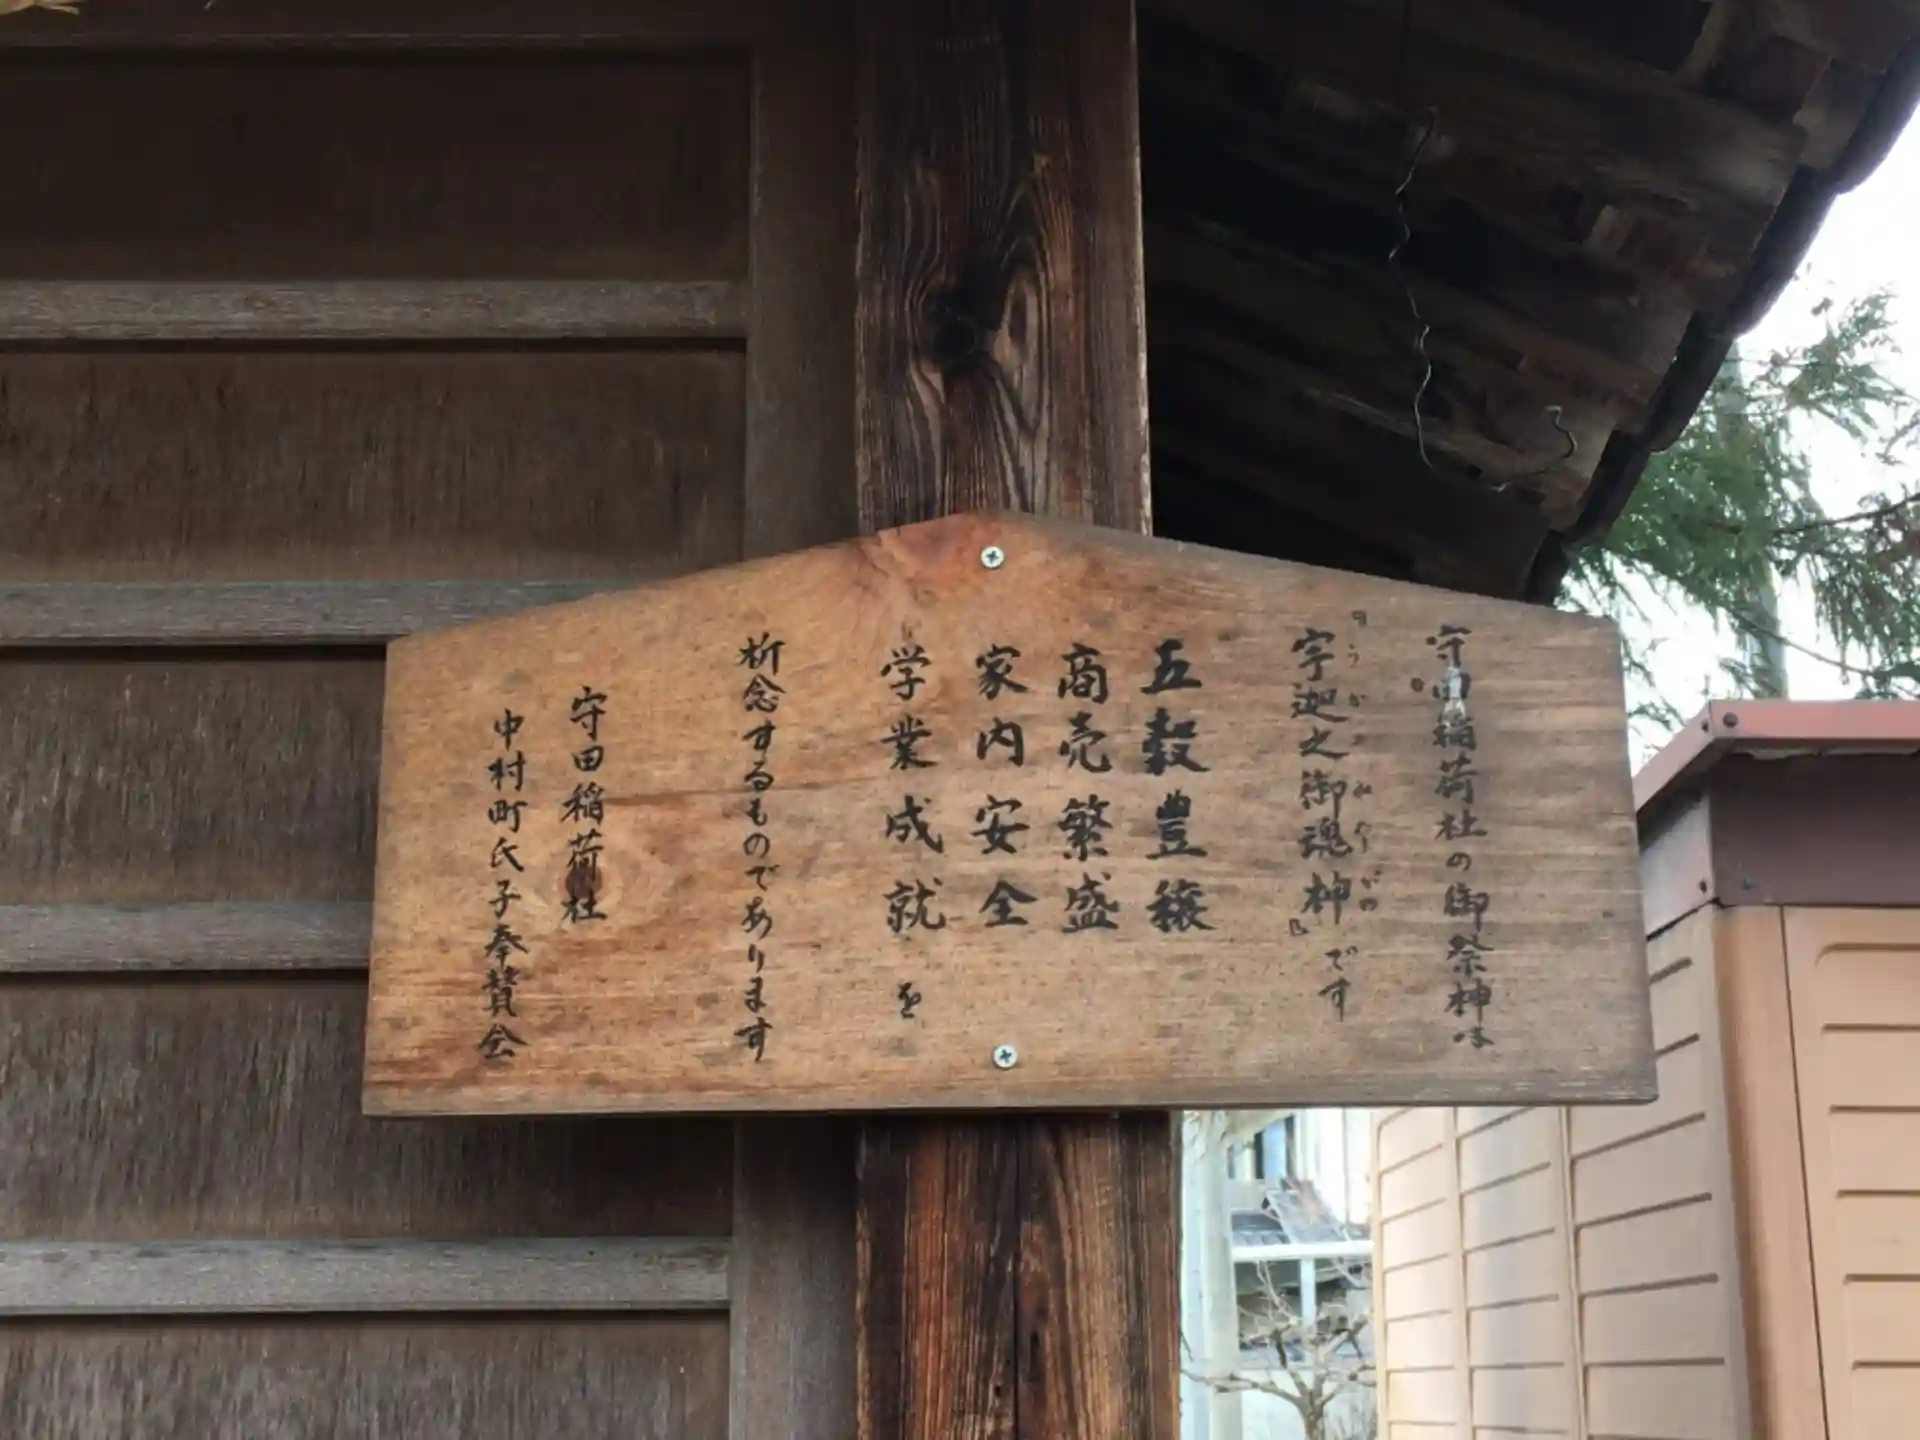 守田稲荷社の御祭神は
『宇迦之御魂神』です
うがのみたまのかみ
五穀豊穣
商売繁盛
家内安全
学業成就を
祈念するものであります
守田稲荷社
中村町氏子奉賛会